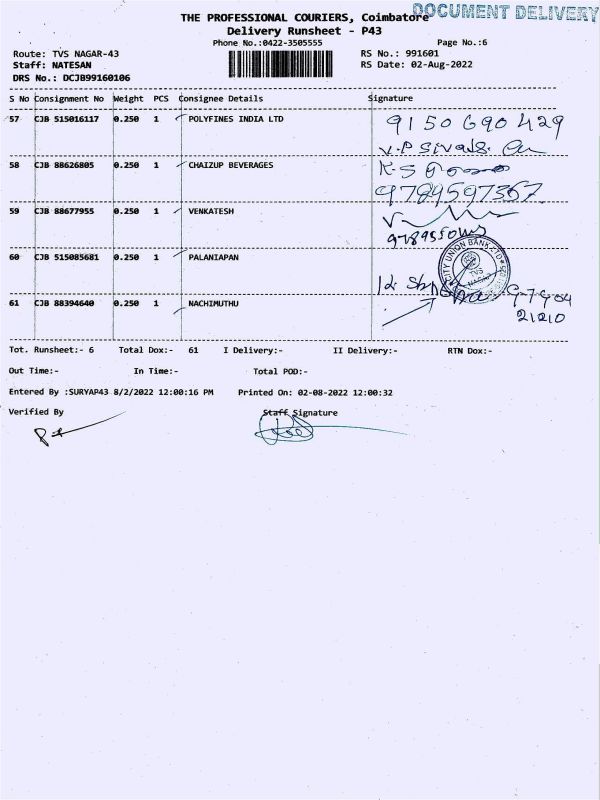 DOCUMENT DELIVERY
THE PROFESSIONAL COURIERS, Coimbatore
Delivery Runsheet - P43
Phone No.:0422-3505555
Page No.:6
Route: TVS NAGAR-43
RS No.: 991601
Staff: NATESAN
RS Date: 02-Aug-2022
DRS No.: DCJB99160106
S No Consignment No Weight PCS Consignee Details Signature
57 CJB 515016117 0.250 1 POLYFINES INDIA LTD
9150690429
58 CJB 88626805 0.250 1 CHAIZUP BEVERAGES
9789597367
59 CJB 88677955 0.250 1 VENKATESH
CITY UNION BANK LTD
TVS
NAGAR
60 CJB 515085681 0.250 1 PALANIAPAN
61 CJB 88394640 0.250 1 NACHIMUTHU
21210
Tot. Runsheet:- 6 Total Dox:- 61 I Delivery:- II Delivery:- RTN Dox:-
Out Time:- In Time:- Total POD:-
Entered By :SURYAP43 8/2/2022 12:00:16 PM Printed On: 02-08-2022 12:00:32
Verified By Staff Signature